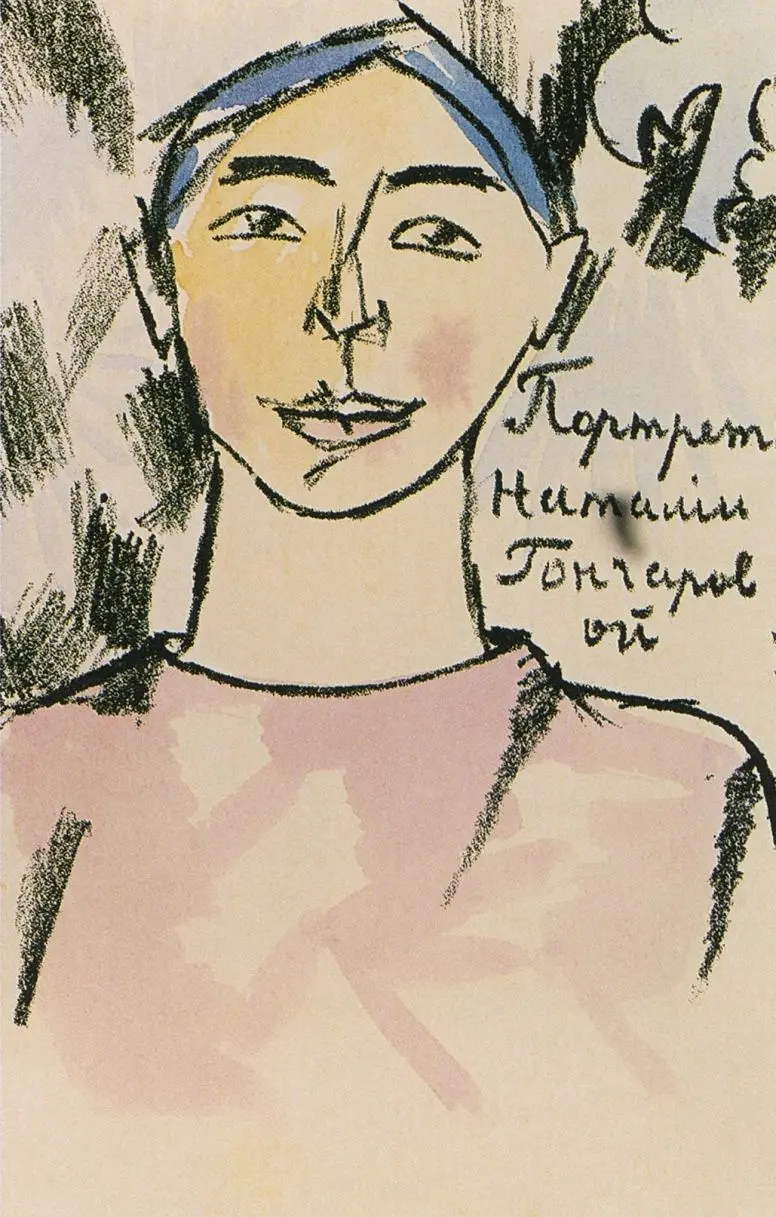 Портрет
Наталіи
Гончаров
ой